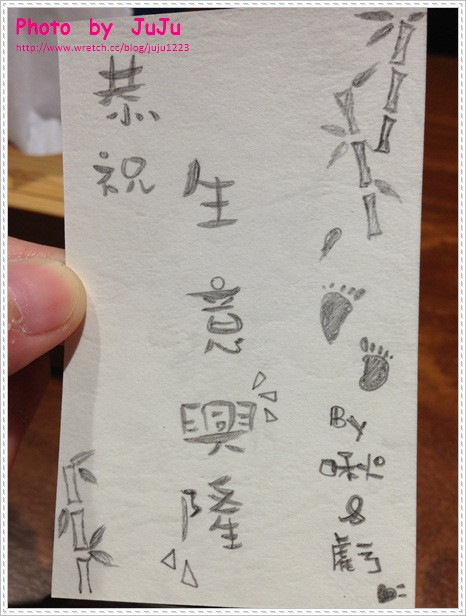 Photo by JuJu
http://www.wretch.cc/blog/juju1223
恭祝
生意興隆
By
&